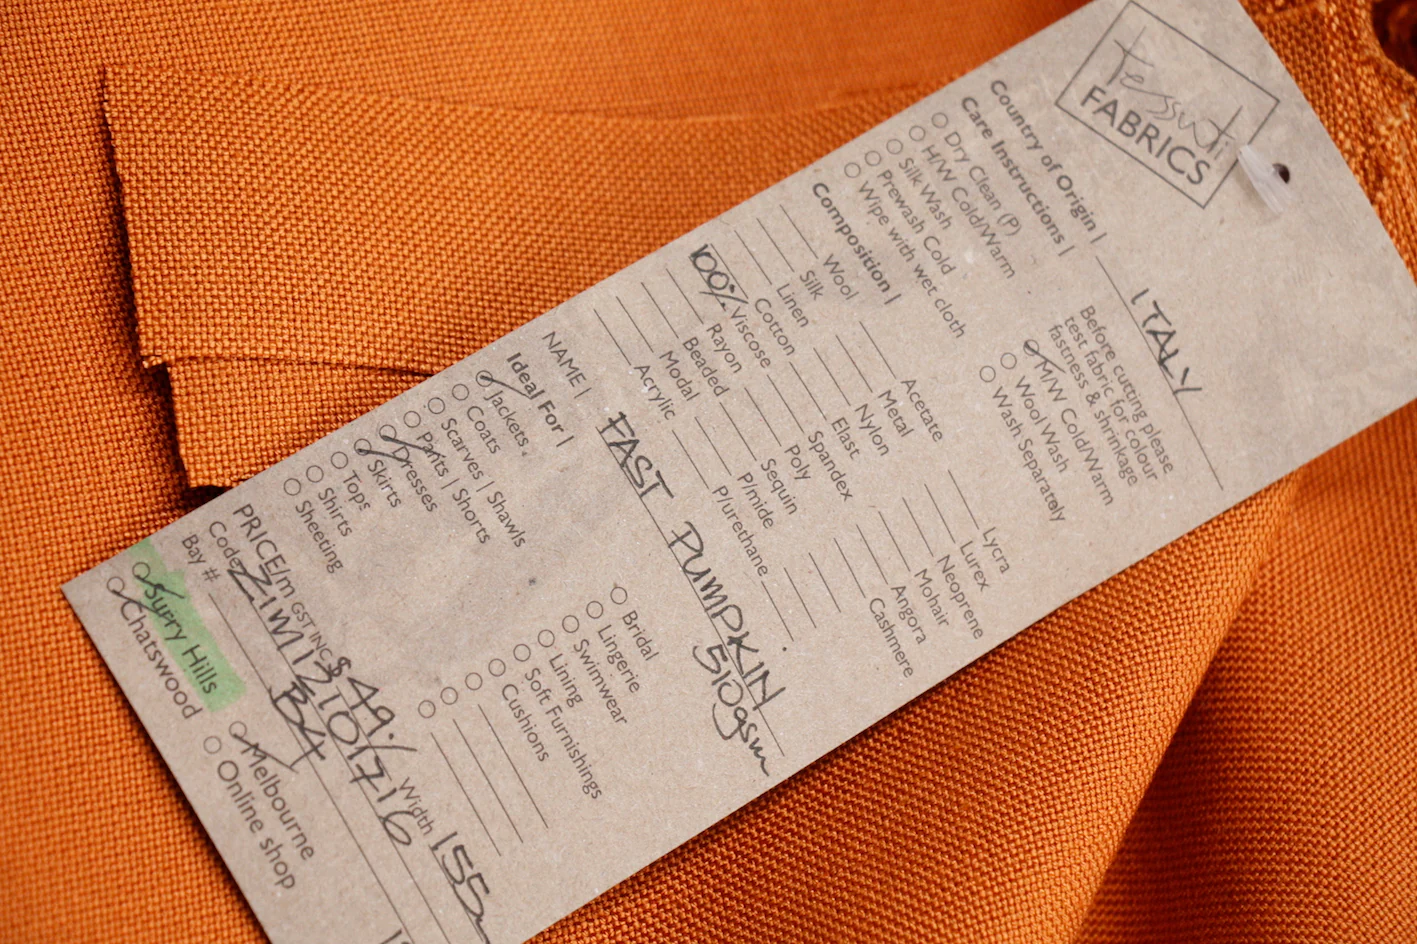 Tessuti
FABRICS
Country of Origin | ITALY
Care Instructions |
Dry Clean (P)
H/W Cold/Warm
Silk Wash
Prewash Cold
Wipe with wet cloth
Before cutting please
test fabric for colour
fastness & shrinkage
M/W Cold/Warm
Wool Wash
Wash Separately
Composition |
Wool
Silk
Linen
Cotton
100% Viscose
Rayon
Beaded
Modal
Acrylic
Acetate
Metal
Nylon
Elast
Spandex
Poly
Sequin
P/mide
P/urethane
Lycra
Lurex
Neoprene
Mohair
Angora
Cashmere
NAME | FAST PUMPKIN
510gsm
Ideal For |
Jackets
Coats
Scarves | Shawls
Pants | Shorts
Dresses
Skirts
Tops
Shirts
Sheeting
Bridal
Lingerie
Swimwear
Lining
Soft Furnishings
Cushions
PRICE/m GST INC $49./ Width 155
Code ZIM12101716
Bay # B4
Surry Hills
Chatswood
Melbourne
Online shop